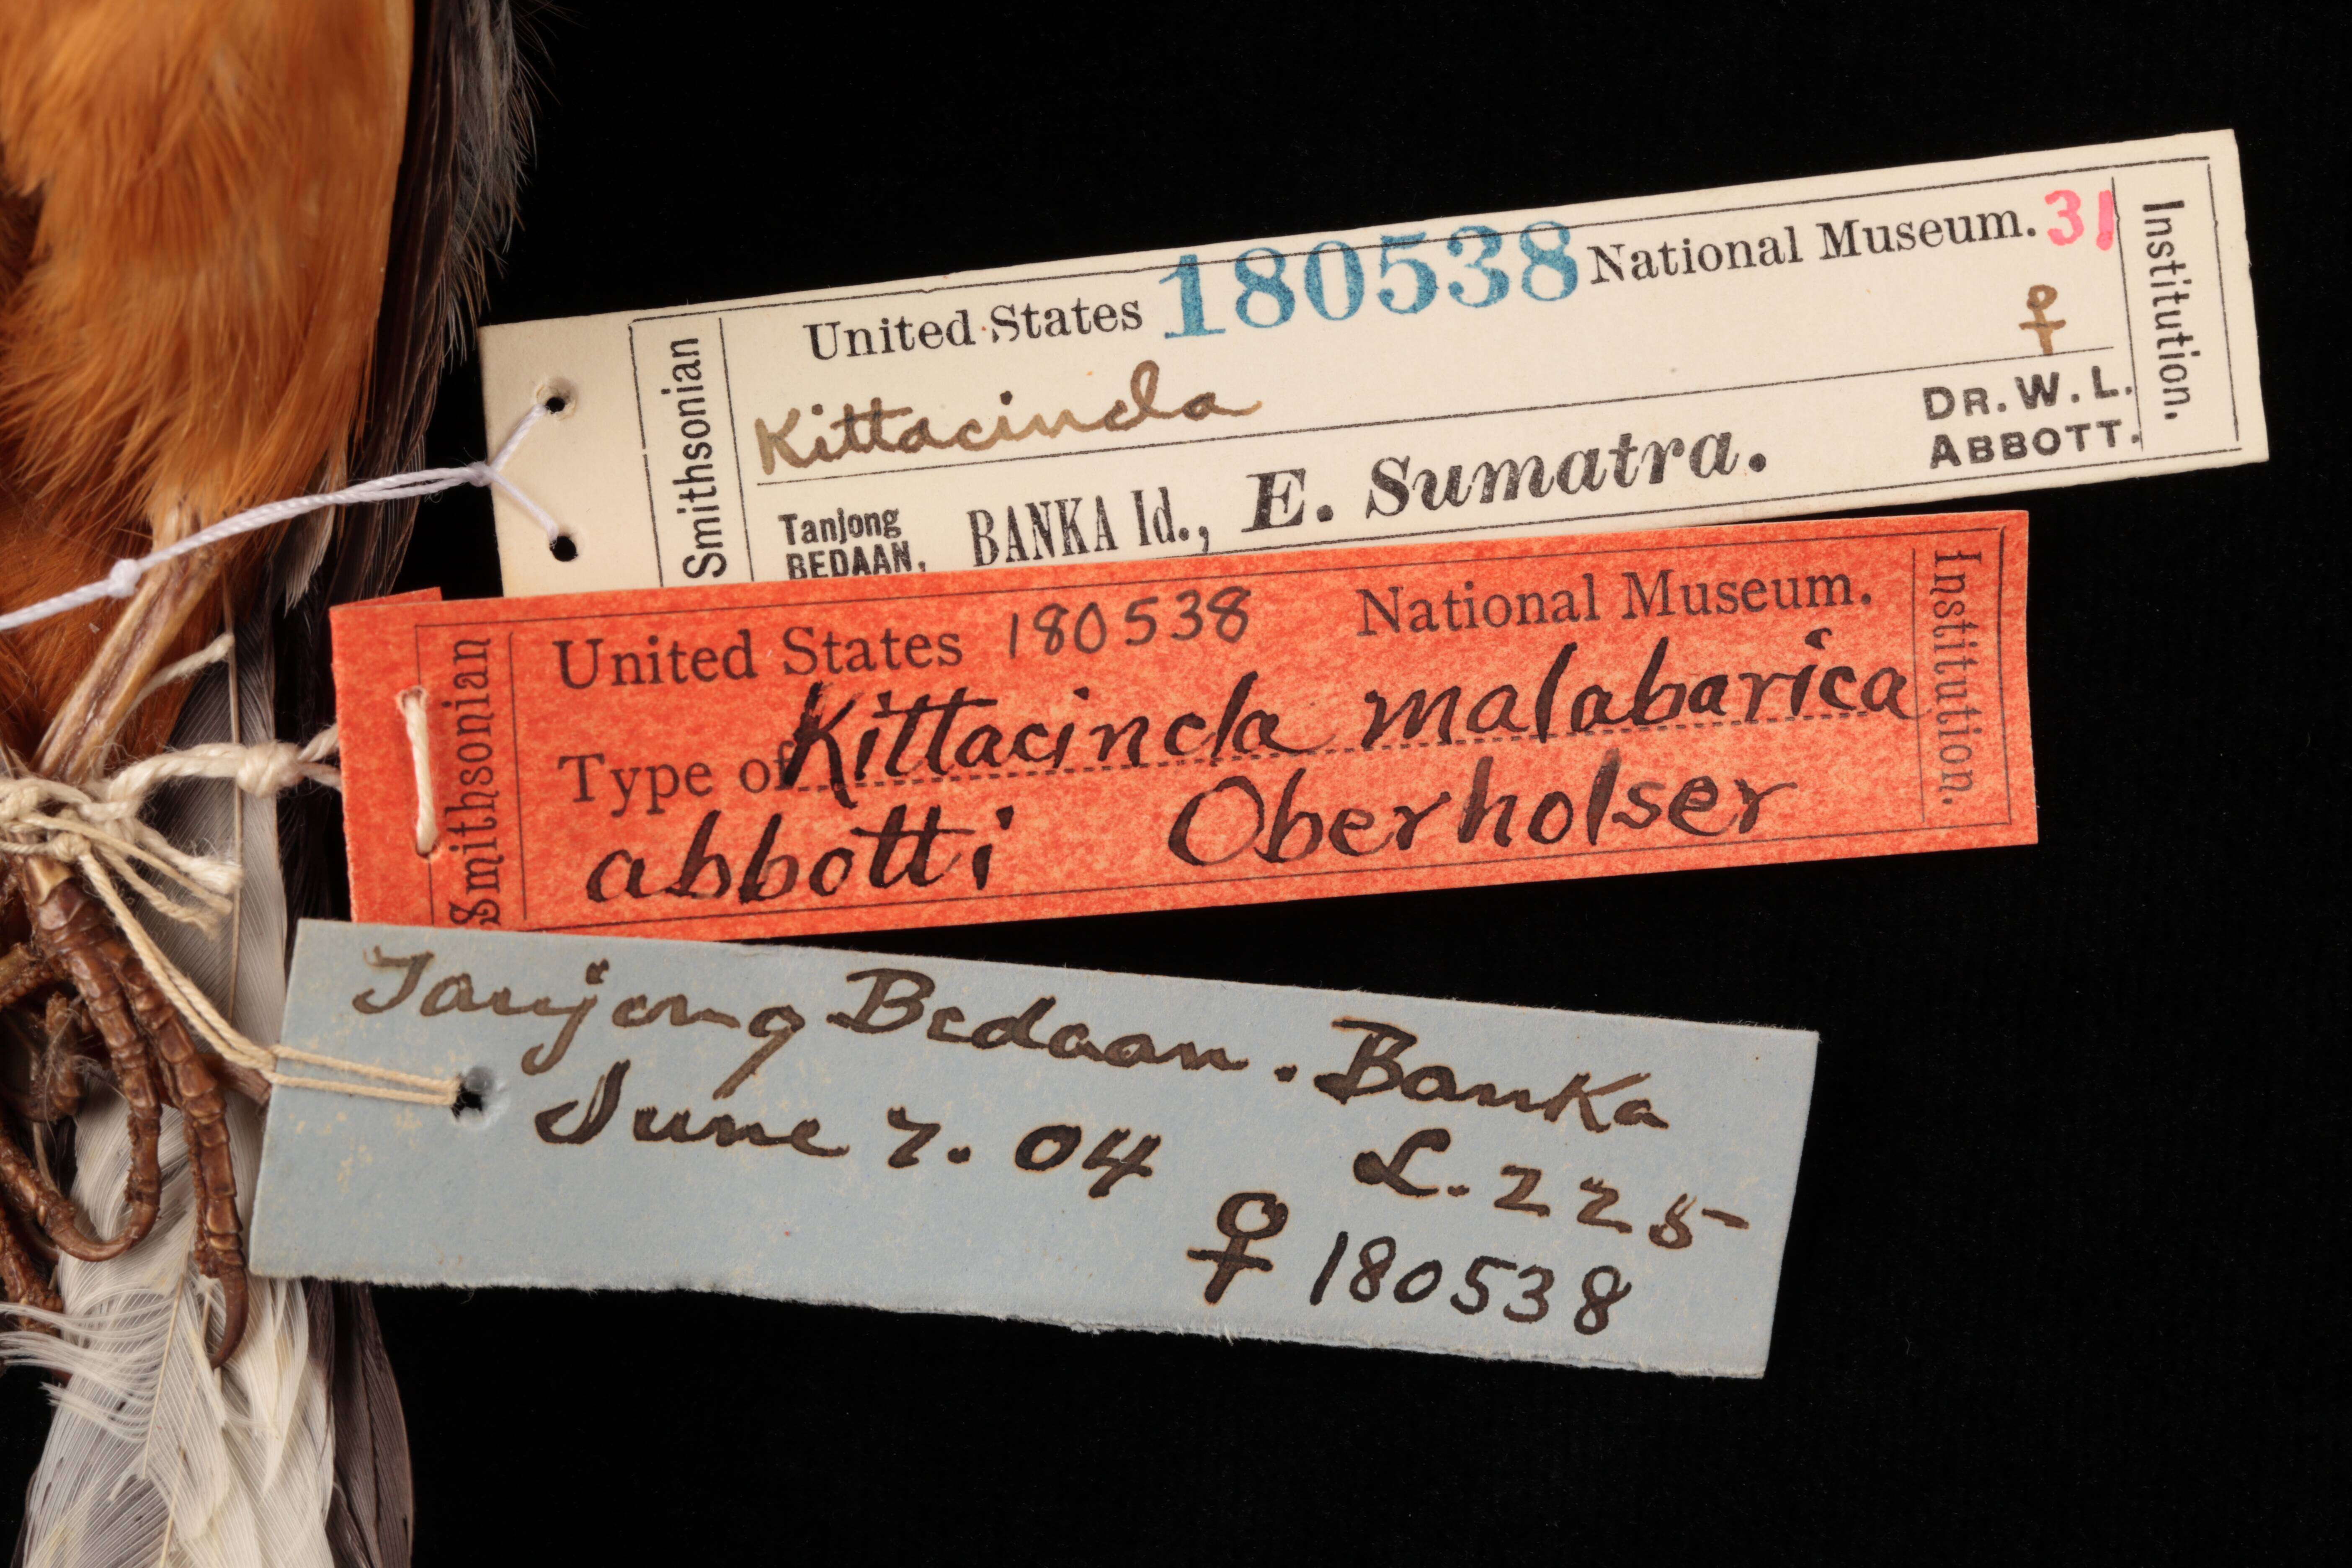 Smithsonian
United States 180538 National Museum. 31
♀
Kittacincla
Tanjong
BEDAAN, BANKA Id., E. Sumatra.
DR. W. L.
ABBOTT.
Institution.
Smithsonian
United States 180538 National Museum.
Type of Kittacincla malabarica
abbotti Oberholser
Institution.
Tanjong Bedaan. Banka
June 7. 04
L. 225
♀ 180538